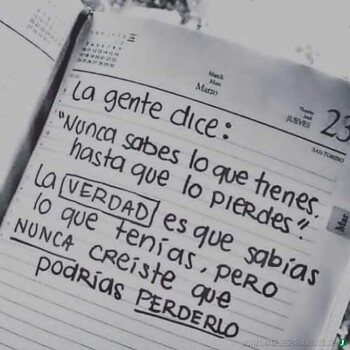 March
Mars
Marzo
23
JUEVES
SANTORIBIO
Mar.
La gente dice:
"Nunca sabes lo que tienes,
hasta que lo pierdes".
La VERDAD es que sabías
lo que tenías, pero
NUNCA creíste que
podrías PERDERLO